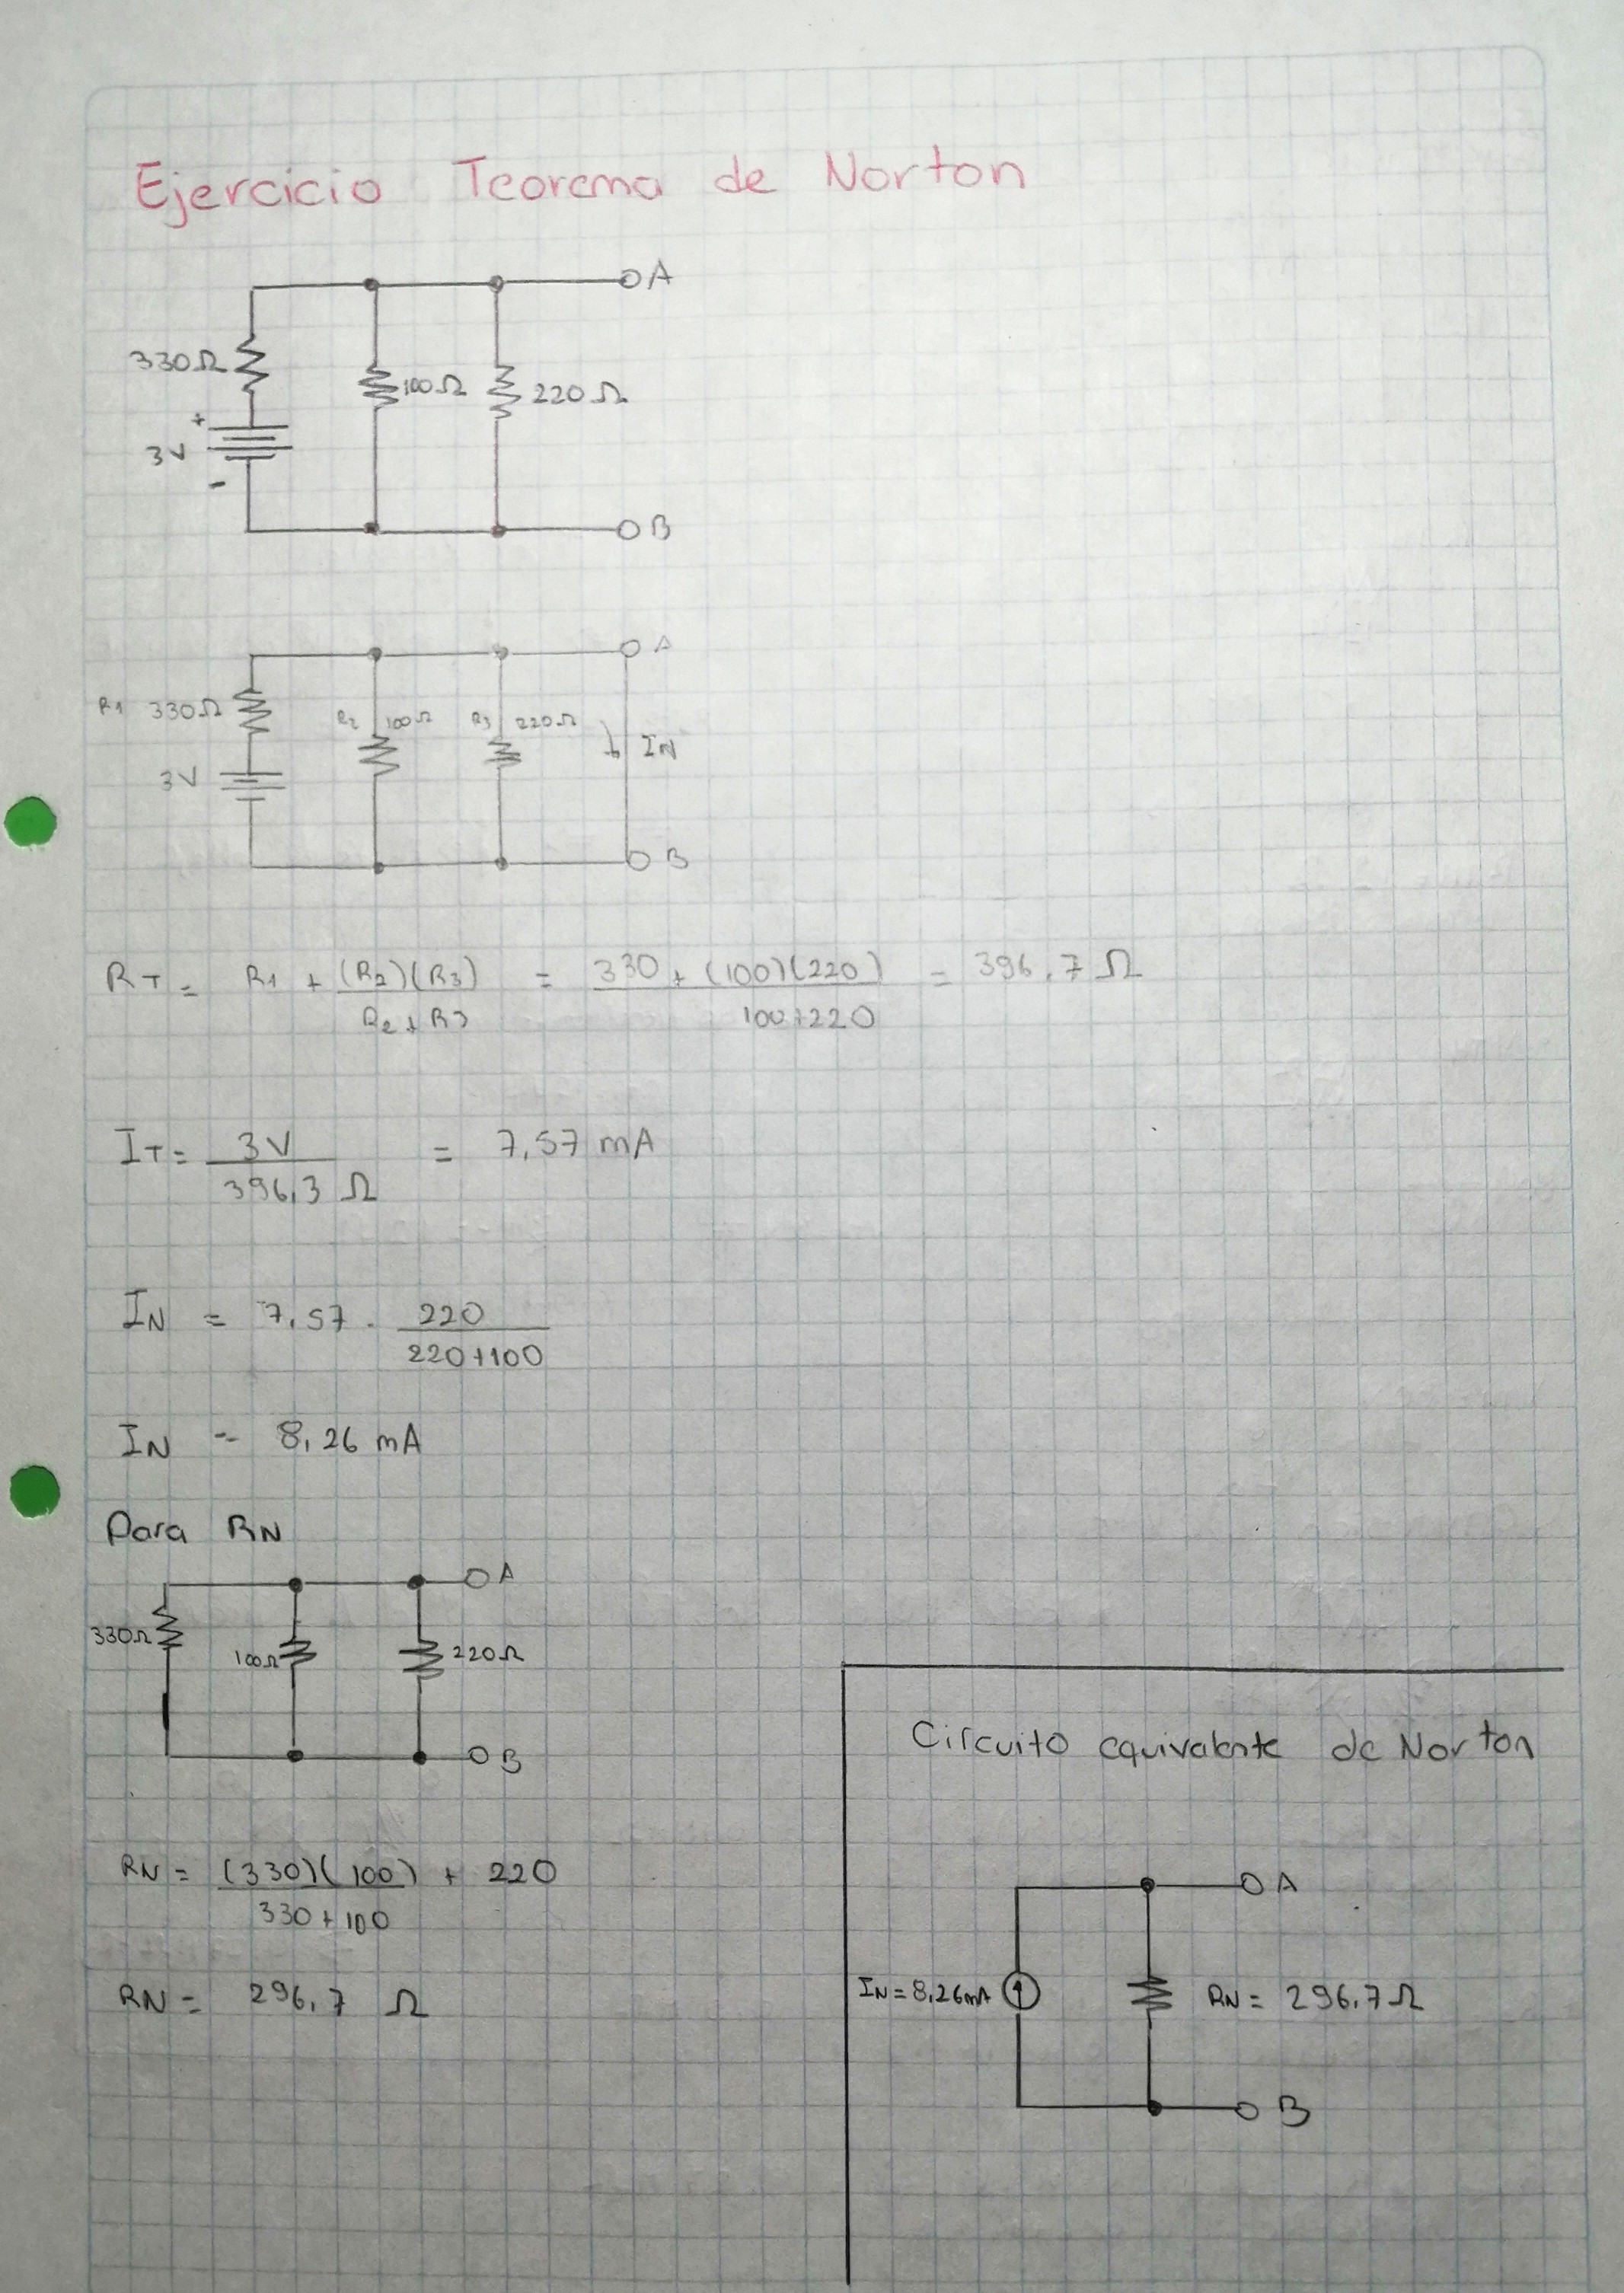 Ejercicio Teorema de Norton
A
330Ω
100Ω
220Ω
+
3V
-
B
A
R1 330Ω
R2 100Ω
R3 220Ω
IN
3V
B
RT = R1 + (R2)(R3) / R2 + R3 = 330 + (100)(220) / 100+220 = 396,7 Ω
IT = 3V / 396,3 Ω = 7,57 mA
IN = 7,57 · 220 / 220+100
IN = 8,26 mA
Para RN
A
330Ω
100Ω
220Ω
B
RN = (330)(100) / 330+100 + 220
RN = 296,7 Ω
Circuito equivalente de Norton
A
IN = 8,26mA
RN = 296,7Ω
B